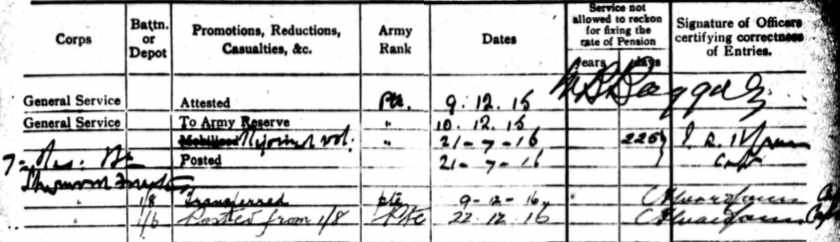 Corps Battn. or Depot Promotions, Reductions, Casualties, &c. Army Rank Dates Service not allowed to reckon for fixing the rate of Pension years days Signature of Officers certifying correctness of Entries.
General Service Attested Pte. 9. 12. 15
General Service To Army Reserve " 10. 12. 15
Mobilised Rejoined vol: " 21-7-16 225
Posted 21-7-16 Capt
1/8 Transferred pte 9-12-16
1/6 Posted from 1/8 Pte 22 12 16